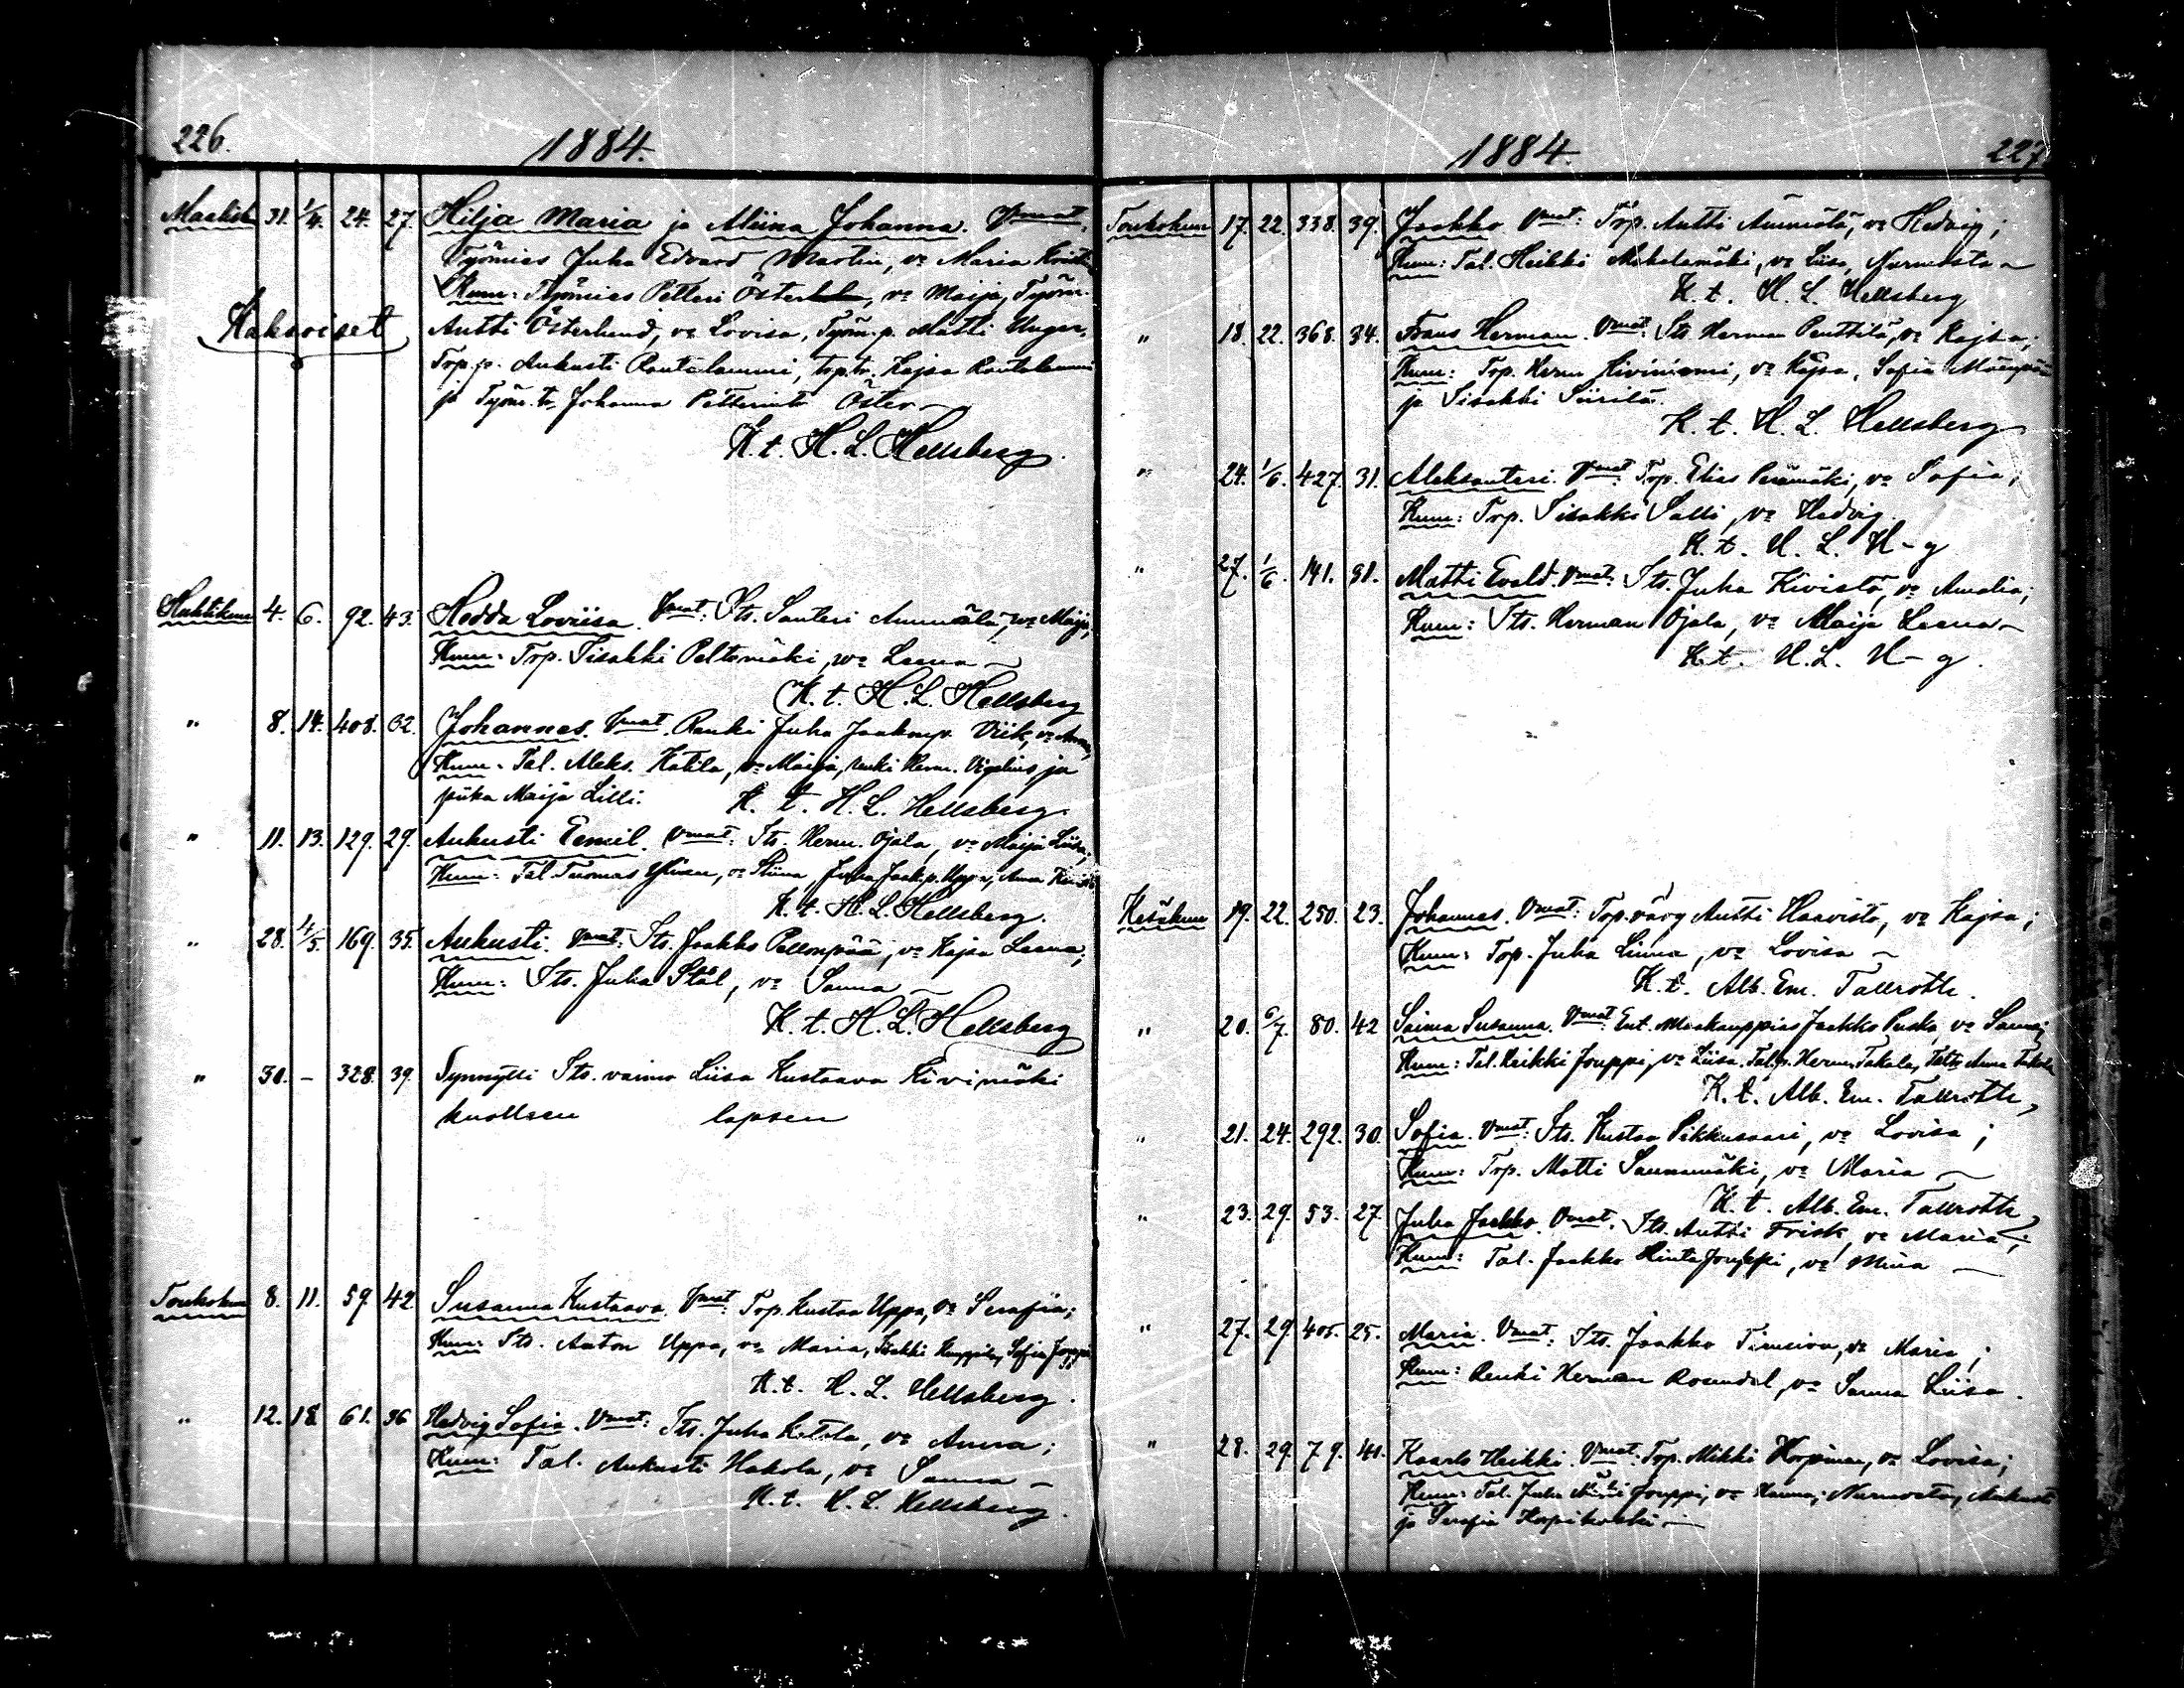 226.
1884.
Maalisk 31. 1/4. 24. 27. Hilja Maria ja Miina Johanna. Vmat.
Työmies Juha Edvard Martin, vo Maria
Kum: Työmies Petteri Öster, vo Maija, Työm.
Kaksoiset
Antti Österlund, vo Lovisa, Työm. p. Matti Unger,
Trp. p. Aukusti Rautalammi, trp. tr. Kajsa Rautalammi
ja Työm. tr. Johanna Petterintr Öster
K. t. H. L. Hellsberg.
Huhtikuu 4. 6. 92. 43. Hedda Loviisa. Vmat: Its. Santeri Ammälä, vo Maija;
Kum: Trp. Iisakki Peltomäki, vo Leena
K. t. H. L. Hellsberg
" 8. 14. 408. 32. Johannes. Vmat. Renki Juha Jaakonp. Viik, vo Anna,
Kum. Tal. Aleks. Katila, vo Maija, renki Herm. Vigelius, ja
piika Maija Lilli. K. t. H. L. Hellsberg.
" 11. 13. 129. 29. Aukusti Eemil. Vmat: Its. Herm. Ojala, vo Maija Liisa;
Kum: Tal. Tuomas, vo Stiina, Juha Jaak.p. Uppa, Anna
K. t. H. L. Hellsberg.
" 28. 4/5. 169. 35. Aukusti. Vmat: Its. Jaakko Pellonpää, vo Kajsa Leena;
Kum: Its. Juha Stål, vo Sanna
K. t. H. L. Hellsberg
" 30. - 328. 39. Synnytti Its. vaimo Liisa Kustaava Kivimäki
kuolleen lapsen
Toukokuu 8. 11. 59. 42 Susanna Kustaava. Vmat: Trp. Kustaa Uppa, vo Serafia;
Kum: Its. Anton Uppa, vo Maria, Iisakki, Sofia
K. t. H. L. Hellsberg.
" 12. 18. 61. 36 Hedvig Sofia. Vmat: Its. Juha Katila, vo Anna;
Kum: Tal. Aukusti Hakola, vo Sanna
K. t. H. L. Hellsberg.
1884.
227.
Toukokuu 17. 22. 338. 39. Jaakko. Vmat: Trp. Antti Ämmälä, vo Hedvig;
Kum: Tal. Heikki, vo Liisa, Nurmosta
K. t. H. L. Hellsberg
" 18. 22. 368. 34. Frans Herman. Vmat: Its Herman Penttilä, vo Kajsa;
Kum: Trp. Herm Kiviniemi, vo Kajsa, Sofia Mäenpää
ja Iisakki Siirilä.
K. t. H. L. Hellsberg
" 24. 1/6. 427. 31. Aleksanteri. Vmat: Trp. Elias Perämäki, vo Sofia;
Kum: Trp. Iisakki Salli, vo Hedvig.
K. t. H. L. H-g
" 27. 1/6. 141. 31. Matti Evald. Vmat: Its. Juha Kivistö, vo Amalia;
Kum: Its. Herman Ojala, vo Maija Leena
K. t. H. L. H-g.
Kesäkuu 19. 22. 250. 23. Johannes. Vmat: Trp. vävy Antti Haavisto, vo Kajsa;
Kum: Trp. Juha Linna, vo Lovisa
K. t. Alb. Em. Tallroth.
" 20. 6/7. 80. 42 Saima Susanna. Vmat: Ent. Maakauppias Jaakko Puska, vo Sanna;
Kum: Tal. Heikki Jouppi, vo Liisa, Tal.p. Herm. Takala, Tal.tr. Anna Takala
K. t. Alb. Em. Tallroth,
" 21. 24. 292. 30. Sofia. Vmat: Its. Kustaa Pikkusaari, vo Lovisa;
Kum: Trp. Matti Saunamäki, vo Maria
K. t. Alb. Em. Tallroth,
" 23. 29. 53. 27. Juha Jaakko. Vmat. Its. Antti Frisk, vo Maria;
Kum: Tal. Jaakko HintaJouppi, vo Miina
" 27. 29. 405. 25. Maria. Vmat: Its. Jaakko, vo Maria;
Kum: Renki Herman Rosendal, vo Sanna Liisa.
" 28. 29. 79. 41. Kaarlo Heikki. Vmat: Trp. Mikki, vo Lovisa;
Kum: Tal. Juha Jouppi, vo Hanna, Nurmosta, Aukusti
ja Serafia Korpikoski